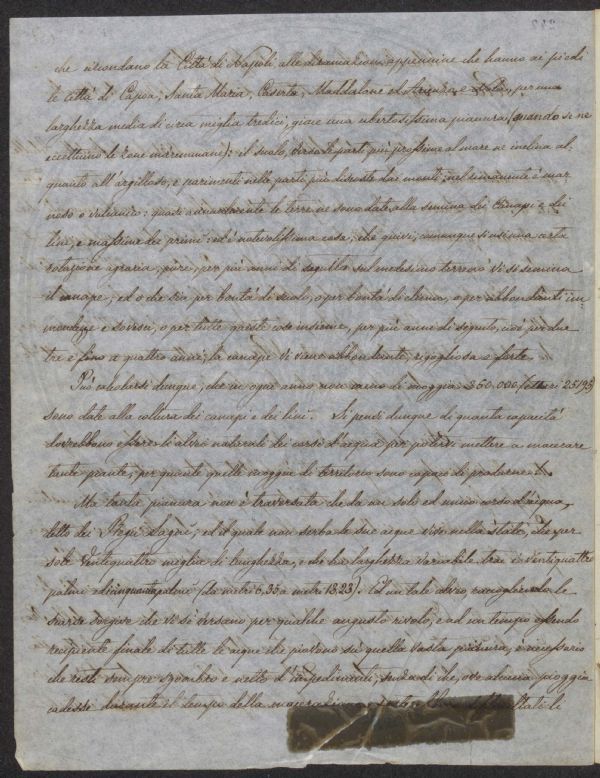 che circondano la Città di Napoli alle diramazioni appennine che hanno ai piedi
le città di Capoa, Santa Maria, Caserta, Maddalone ed Arienzo, e Nola, per una
larghezza media di circa miglia tredici, giace una ubertosissima pianura (quando se ne
eccettuino le zone maremmane): il suolo, verso le parti più prossime al mare se inclina al
quanto all'argilloso, e parimenti nelle parti più discoste dai monti; nel rimanente è
o vulcanico: quasi le terre ne sono date alla semina dei Canapi e dei
lini, e massime dei primi: ed è notevolissima cosa, che quivi, comunque si usi una certa
rotazione agraria, pure, per più anni di seguito sul medesimo terreno vi si semina
il canape; ed o che sia per bontà di suolo, o per bontà di clima, o per abbondanti im
mondezze e sovesci, o per tutte queste cose insieme, per più anni di seguito, cioè per due
tre e fino a quattro anni, la canape vi viene abbondante, rigogliosa e forte.
Può calcolarsi dunque, che in ogni anno non meno di moggia 350.000
sono date alla coltura dei canapi e dei lini. Si pensi dunque di quanta capacità
dovrebbono essere le alvei naturale dei corsi d'acqua per potersi mettere a macerare
tante piante, per quante quelle moggia di territorio sono capaci di produrne!
Ma tanta pianura non è traversata che da un solo ed unico corso d'acqua,
detto dei Regii Lagni; ed il quale non serba le sue acque vive nella state, che per
sole ventiquattro miglia di lunghezza, e che ha larghezza variabile tra i ventiquattro
palmi e i cinquanta palmi (da metri 6,35 a metri 13,23). Ed un tale alveo raccogliendo le
scarse sorgive che vi si versano per qualche angusto rivolo, e ad un tempo essendo
recipiente finale di tutte le acque che piovono su quella vasta pianura, è necessario
che resti sempre sgombro e netto d'impedimenti, sendochè, ove alcuna pioggia
cadesse durante il tempo della macerazione